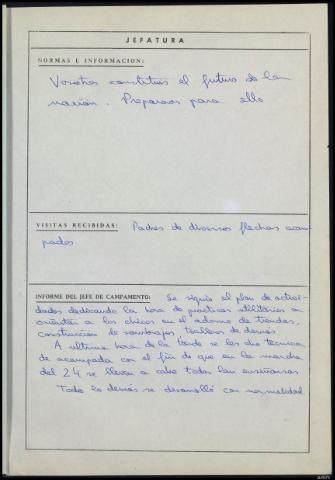 JEFATURA
NORMAS E INFORMACION:
Vosotros constituis el futuro de la
nación. Preparaos para ello
VISITAS RECIBIDAS: Padres de diversos flechas acam-
pados
INFORME DEL JEFE DE CAMPAMENTO: Se siguió el plan de activi-
dades dedicando la hora de practicas utilitarias a
orientar a los chicos en el adorno de tiendas,
construccion de sombrajos toalleros de demás
A ultima hora de la tarde se les dio tecnica
de acampada con el fin de que en la marcha
del 24 se lleven a cabo todas las enseñanzas
Todo lo demás se desarrolló con normalidad